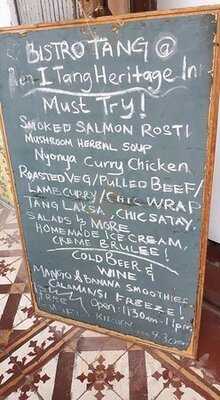 BISTRO TANG @
Ren-I Tang Heritage Inn
Must Try!
SMOKED SALMON ROSTI
MUSHROOM HERBAL SOUP
Nyonya Curry Chicken
ROASTED VEG/PULLED BEEF/
LAMB CURRY/CHIC WRAP
TANG LAKSA, CHIC SATAY,
SALADS & MORE
HOMEMADE ICE CREAM,
CREME BRULEE!
COLD BEER &
WINE &
MANGO & BANANA SMOOTHIES
CALAMANSI FREEZE!
FREE Open: 11:30am-11pm